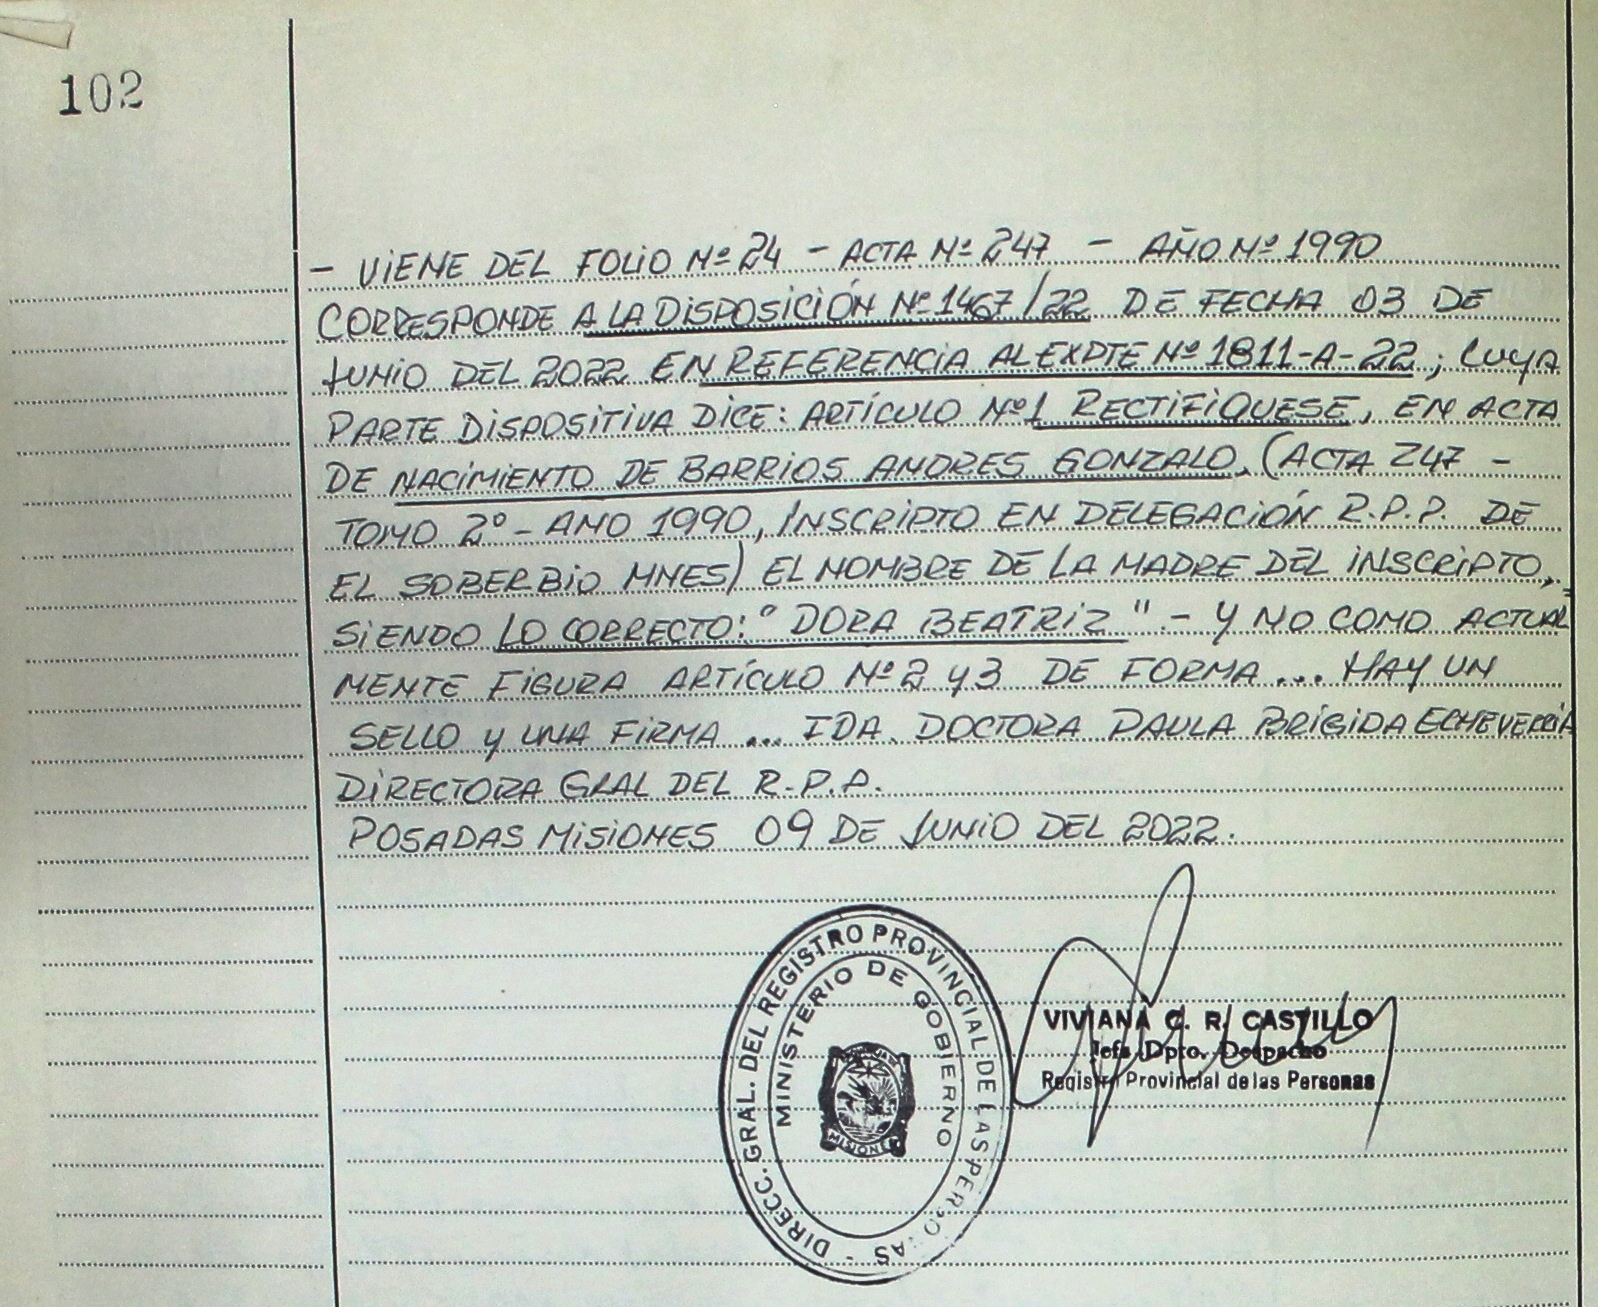 102
- VIENE DEL FOLIO Nº 24 - ACTA Nº 247 - AÑO Nº 1990
CORRESPONDE A LA DISPOSICIÓN Nº 1467/22 DE FECHA 03 DE
JUNIO DEL 2022 EN REFERENCIA AL EXPTE Nº 1811-A-22; CUYA
PARTE DISPOSITIVA DICE: ARTÍCULO Nº1 RECTIFIQUESE, EN ACTA
DE NACIMIENTO DE BARRIOS ANDRES GONZALO, (ACTA 247 -
TOMO 2º - AÑO 1990, INSCRIPTO EN DELEGACIÓN R.P.P. DE
EL SOBERBIO MNES) EL NOMBRE DE LA MADRE DEL INSCRIPTO,
SIENDO LO CORRECTO: "DORA BEATRIZ" .- Y NO COMO ACTUAL
MENTE FIGURA ARTÍCULO Nº 2 Y 3 DE FORMA ... HAY UN
SELLO Y UNA FIRMA ... FDA. DOCTORA PAULA BRÍGIDA ECHEVERRÍA
DIRECTORA GRAL DEL R.P.P.
POSADAS MISIONES 09 DE JUNIO DEL 2022.
DIRECC. GRAL. DEL REGISTRO PROVINCIAL DE LAS PERSONAS -
MINISTERIO DE GOBIERNO
MISIONES
VIVIANA C. R. CASTILLO
Jefa Dpto. Despacho
Registro Provincial de las Personas